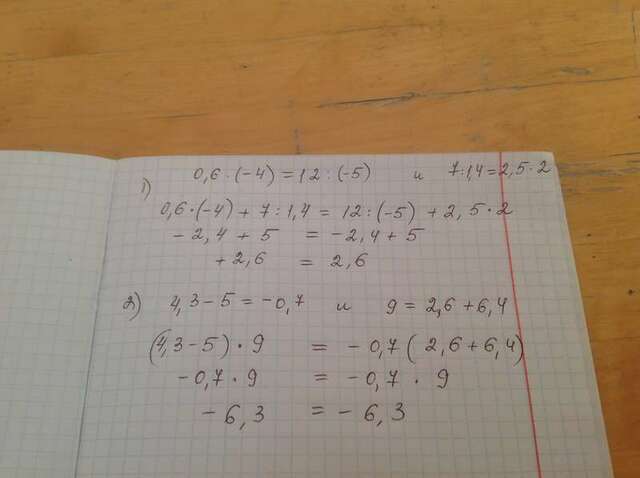 1) 0,6 · (-4) = 12 : (-5) и 7:1,4 = 2,5 · 2
0,6 · (-4) + 7 : 1,4 = 12 : (-5) + 2,5 · 2
- 2,4 + 5 = - 2,4 + 5
+ 2,6 = 2,6
2) 4,3 - 5 = - 0,7 и 9 = 2,6 + 6,4
(4,3 - 5) · 9 = - 0,7 ( 2,6 + 6,4)
- 0,7 · 9 = - 0,7 · 9
- 6,3 = - 6,3